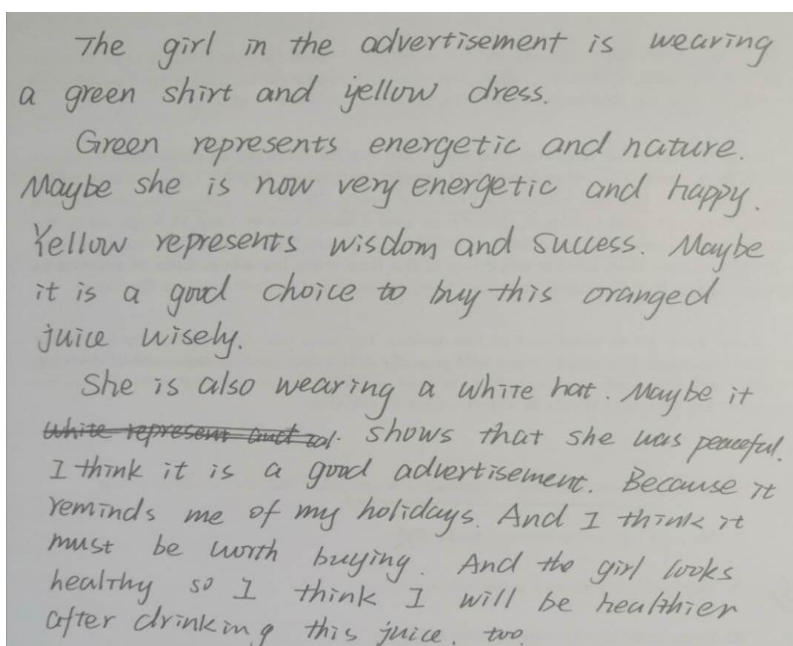 The girl in the advertisement is wearing
a green shirt and yellow dress.
Green represents energetic and nature.
Maybe she is now very energetic and happy.
Yellow represents wisdom and success. Maybe
it is a good choice to buy this oranged
juice wisely.
She is also wearing a white hat. Maybe it
white represent and cal. shows that she was peaceful.
I think it is a good advertisement. Because it
reminds me of my holidays. And I think it
must be worth buying. And the girl looks
healthy so I think I will be healthier
after drinking this juice. too.